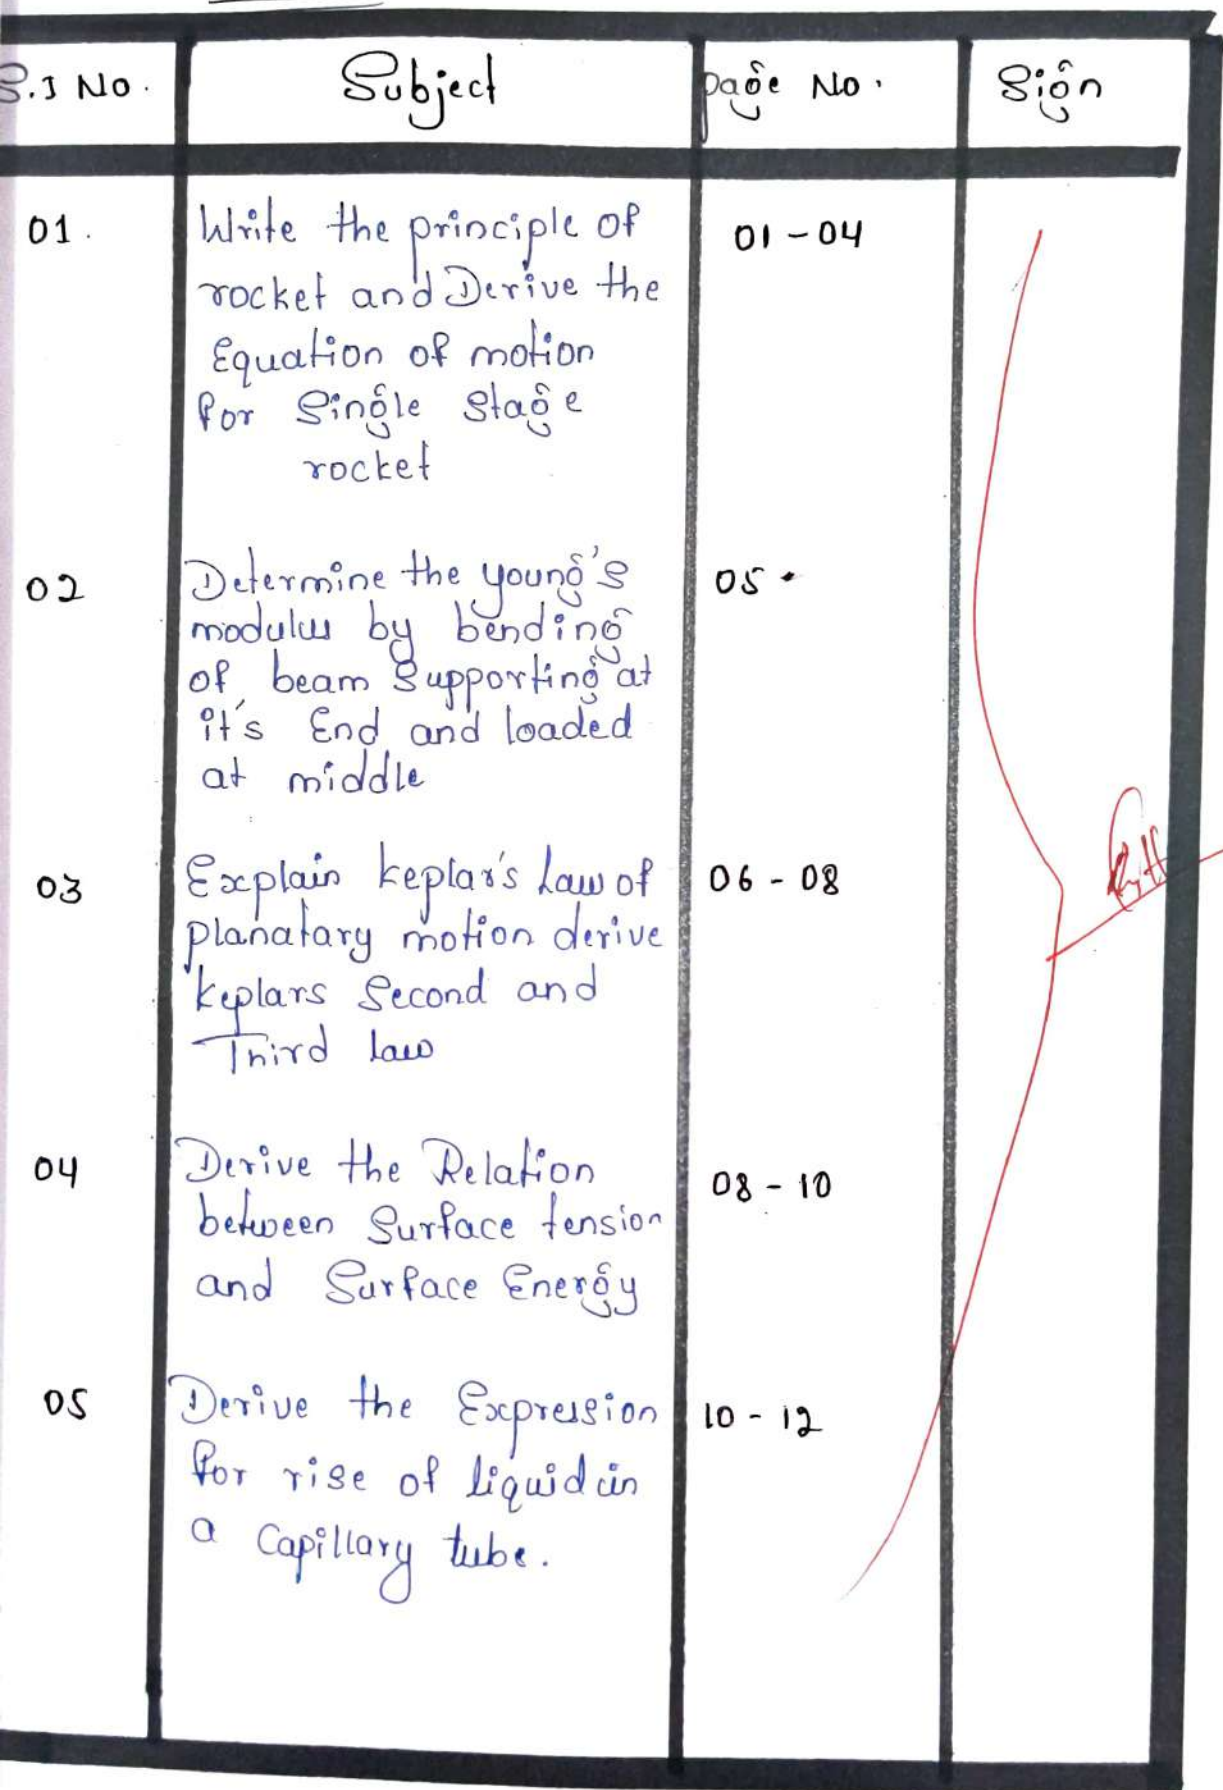 S.I No. Subject page No. Sign
01. Write the principle of 01-04
rocket and Derive the
Equation of motion
for Single Stage
rocket
02 Determine the young's 05.
modulus by bending
of beam Supporting at
it's End and loaded
at middle
03 Explain keplar's Law of 06-08
planatary motion derive
keplars Second and
Third law
04 Derive the Relation 08-10
between Surface tension
and Surface Energy
05 Derive the Expression 10-12
for rise of liquid in
a Capillary tube.